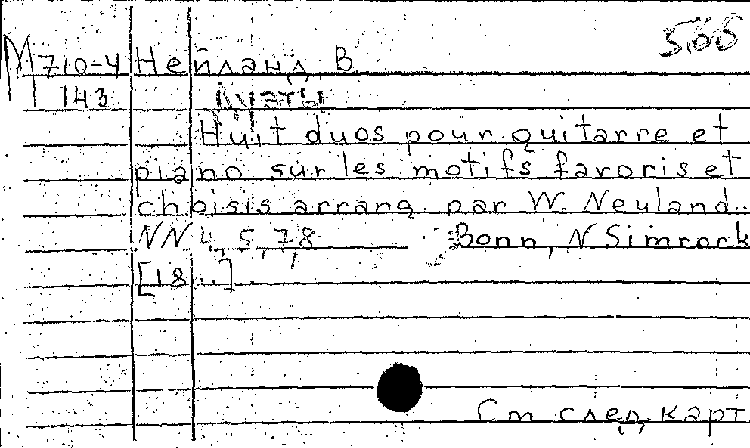 566
М 710-4 Нейланд В
143 Дуэты
Huit duos pour guitarre et
piano sur les motifs favoris et
choisis arrang. par W. Neuland.
NN 4, 5, 7, 8 Bonn, N Simrock
[18..]
См след. карт